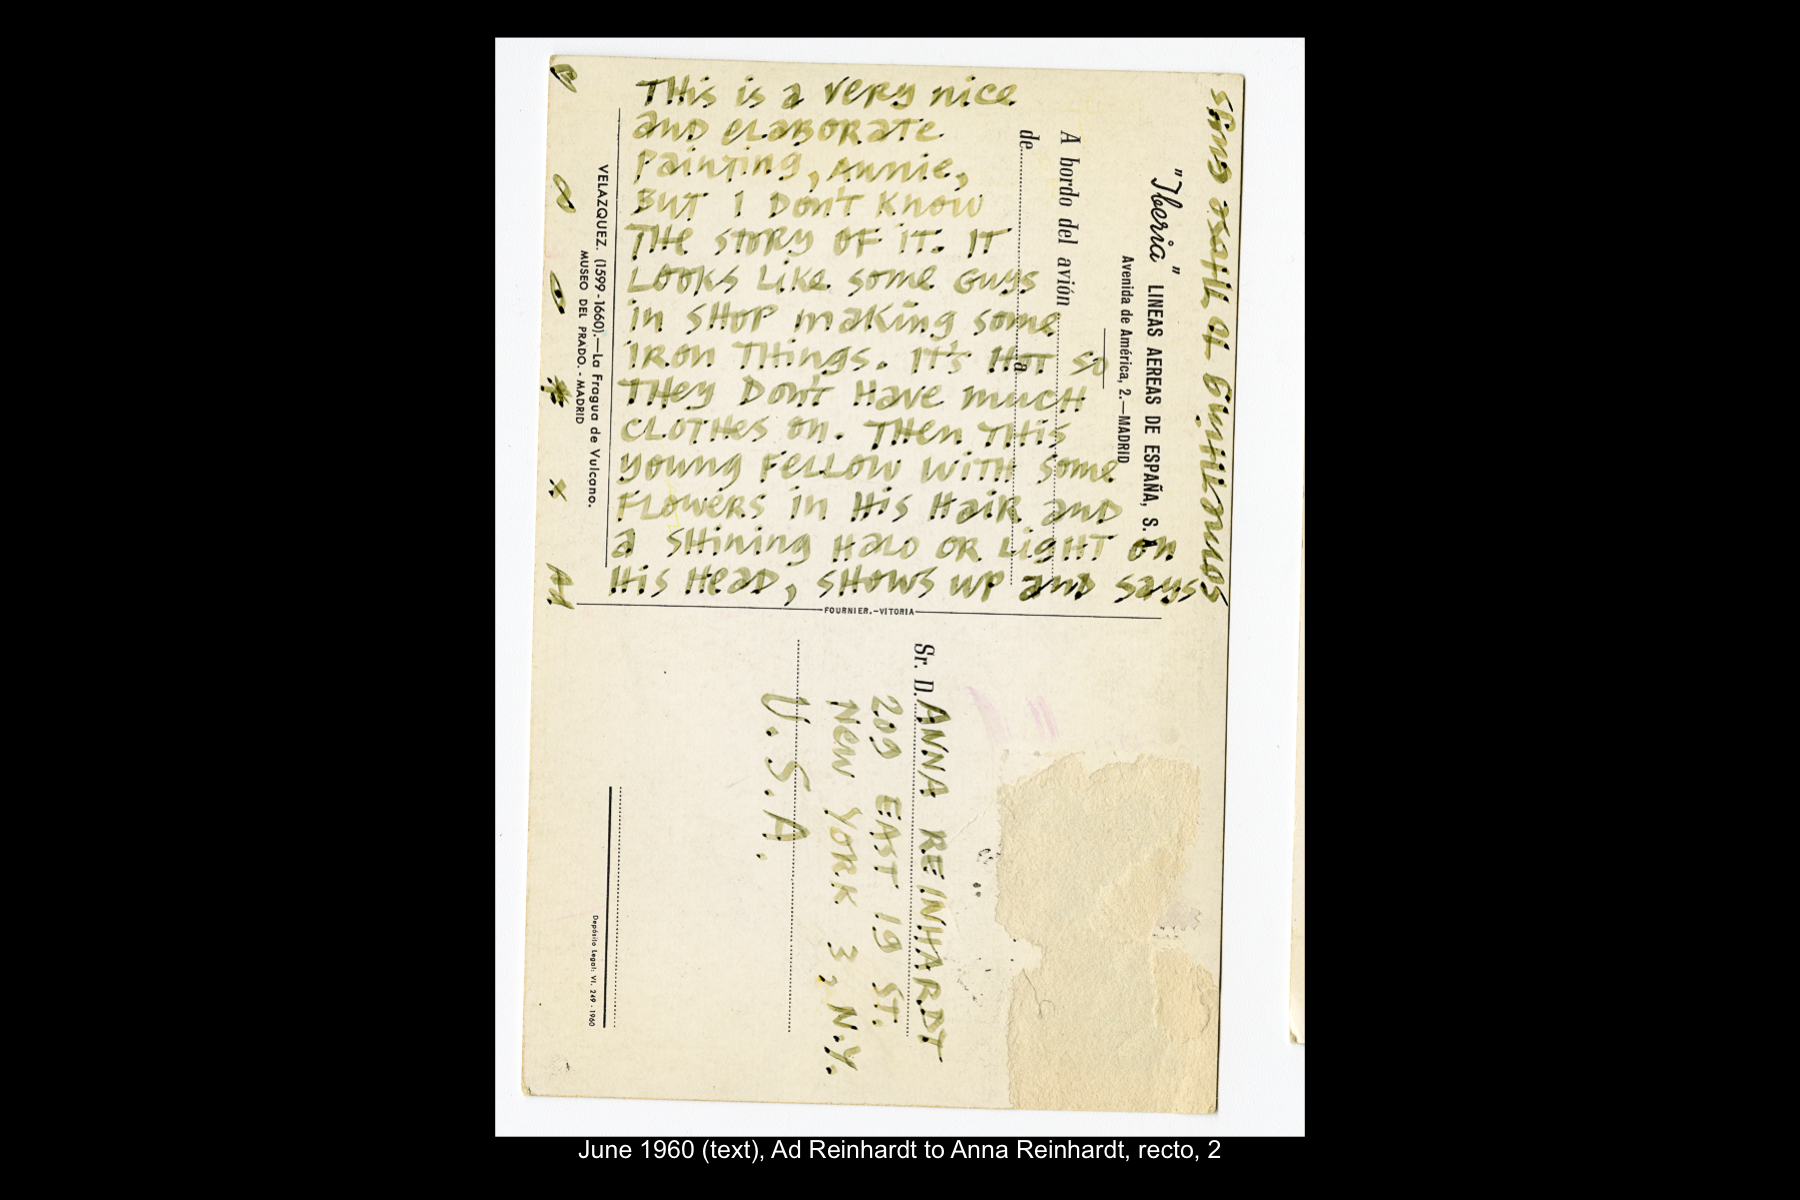 THis is a very nice
and elaborate
painting, Annie,
But I Don't Know
THe story of it. It
Looks Like some Guys
in SHop making some
iron THings. It's Hot so
THey Don't Have much
CLOTHes on. THen THis
young Fellow WiTH some
FLowers in His Hair and
a SHining Halo or LigHT on
His Head, SHows up and says
someTHing To THese Guys
"Iberia" LINEAS AEREAS DE ESPAÑA, S. A.
Avenida de América, 2.—MADRID
A bordo del avión
de
a
VELAZQUEZ. (1599-1660).—La Fragua de Vulcano.
MUSEO DEL PRADO. - MADRID
FOURNIER.-VITORIA
Sr. D. ANNA REINHARDT
209 EAST 19 ST.
New York 3, N.Y.
U.S.A.
Depósito Legal: VI. 249 - 1960
June 1960 (text), Ad Reinhardt to Anna Reinhardt, recto, 2